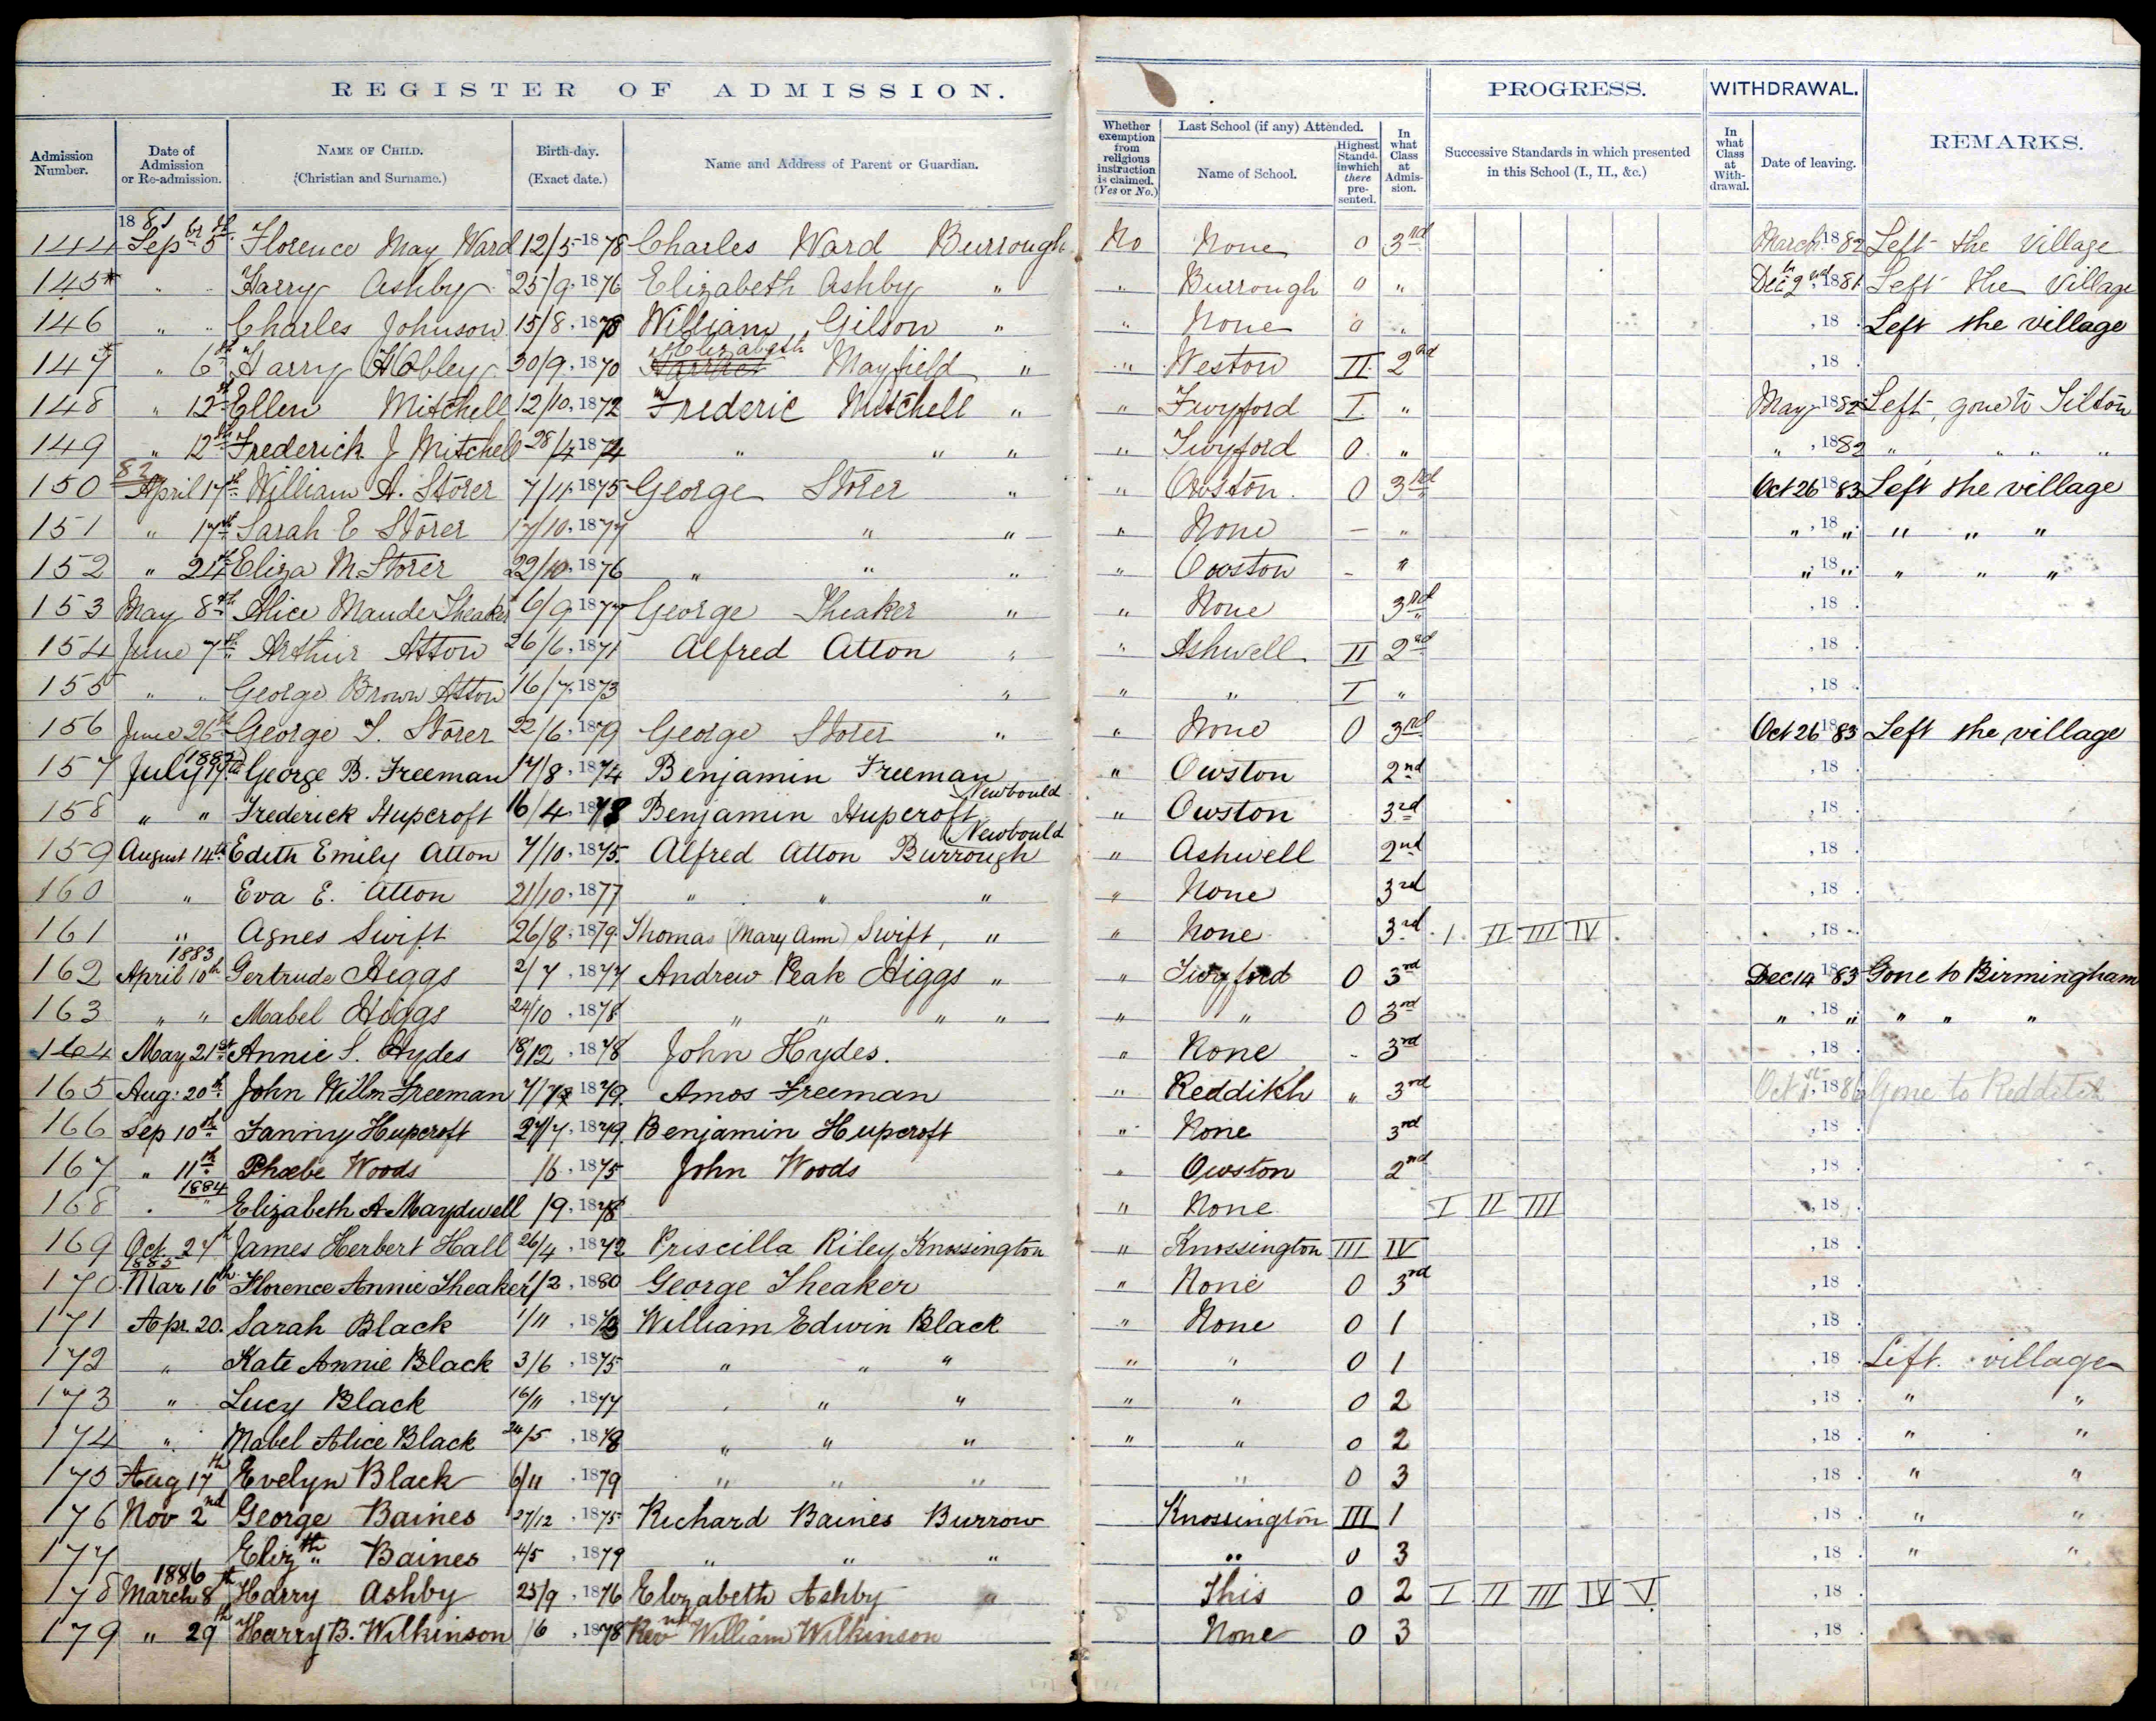 REGISTER OF ADMISSION.
PROGRESS. WITHDRAWAL. REMARKS.
Admission Number. Date of Admission or Re-admission. NAME OF CHILD. (Christian and Surname.) Birth-day. (Exact date.) Name and Address of Parent or Guardian. Whether exemption from religious instruction is claimed. (Yes or No.) Last School (if any) Attended. Name of School. Highest Standd. in which there pre-sented. In what Class at Admis-sion. Successive Standards in which presented in this School (I., II., &c.) In what Class at With-drawal. Date of leaving.
1881
144 Sepbr 5th Florence May Ward 12/5-1878 Charles Ward Burrough No None 0 3rd March 1882 Left the Village
145* " " Harry Ashby 25/9.1876 Elizabeth Ashby " " Burrough 0 " Dec 2nd 1881 Left the Village
146 " " Charles Johnson 15/8.1878 William Gilson " " None 0 " , 18 . Left the village
147* " 6th Harry Hobley 30/9.1870 Harriet Elizabeth Mayfield " " Weston II 2nd , 18 .
148 " 12th Ellen Mitchell 12/10.1872 Frederic Mitchell " " Twyford I " May 1882 Left, gone to Tilton
149 " 12th Frederick J Mitchell 28/4 1874 " " " " Twyford 0 " " , 1882 " " " "
82
150 April 17th William A. Storer 7/11.1875 George Storer " " Owston 0 3rd Oct 26 1883 Left the village
151 " 17th Sarah E Storer 17/10.1877 " " " " None — " " , 18 " " " "
152 " 24th Eliza M Storer 22/10.1876 " " " " Owston - " " , 18 " " " "
153 May 8th Alice Maude Theaker 6/9.1877 George Theaker " " None 3rd , 18 .
154 June 7th Arthur Atton 26/6.1871 Alfred Atton " " Ashwell II 2nd , 18 .
155 " " George Brown Atton 16/7.1873 " " " I " , 18 .
156 June 26th George T. Storer 22/6.1879 George Storer " " None 0 3rd Oct 26 1883 Left the village
157 July 17th (1882) George B. Freeman 17/8.1874 Benjamin Freeman Newbould " Owston 2nd , 18 .
158 " " Frederick Hupcroft 16/4.1878 Benjamin Hupcroft Newbould " Owston 3rd , 18 .
159 August 14th Edith Emily Atton 7/10.1875 Alfred Atton Burrough " Ashwell 2nd , 18 .
160 " Eva E. Atton 21/10.1877 " " " " None 3rd , 18 .
161 " Agnes Swift 26/8.1879 Thomas (Mary Ann) Swift, " " None 3rd I II III IV , 18 .
1883
162 April 10th Gertrude Higgs 2/7 .1877 Andrew Peak Higgs " " Twyford 0 3rd Dec 14 1883 Gone to Birmingham
163 " " Mabel Higgs 24/10 .1878 " " " " " " 0 3rd " , 18 " " " "
164 May 21st Annie S. Hydes 18/12 .1878 John Hydes. " None - 3rd , 18 .
165 Aug. 20th John Willm Freeman 1879 Amos Freeman " Reddikh " 3rd Oct 1st 1886 Gone to Redditch
166 Sep 10th Fanny Hupcroft 27/7.1879 Benjamin Hupcroft " None 3rd , 18 .
167 " 11th Phœbe Woods /6 .1875 John Woods " Owston 2nd , 18 .
1884
168 " " Elizabeth A Maydwell /9 .1878 " None I II III , 18 .
169 Oct. 27th James Herbert Hall 26/4 .1872 Priscilla Riley Knossington " Knossington III IV , 18 .
1885
170 Mar 16th Florence Annie Theaker 7/2 .1880 George Theaker " None 0 3rd , 18 .
171 Apr. 20. Sarah Black 1/11 .1873 William Edwin Black " None 0 1 , 18 .
172 " Kate Annie Black 3/6 .1875 " " " " " 0 1 , 18 . Left village
173 " Lucy Black 16/11 .1877 " " " " " 0 2 , 18 . " "
174 " Mabel Alice Black 24/5 .1878 " " " " " 0 2 , 18 . " "
175 Aug 17th Evelyn Black 6/11 .1879 " " " " 0 3 , 18 . " "
176 Nov 2nd George Baines 27/12 .1875 Richard Baines Burrow Knossington III 1 , 18 . " "
177 Elizth " Baines 4/5 .1879 " " " " 0 3 , 18 . " "
1886
178 March 8th Harry Ashby 25/9 .1876 Elizabeth Ashby " This 0 2 I II III IV V , 18 .
179 " 29th Harry B. Wilkinson /6 .1878 Revnd William Wilkinson None 0 3 , 18 .